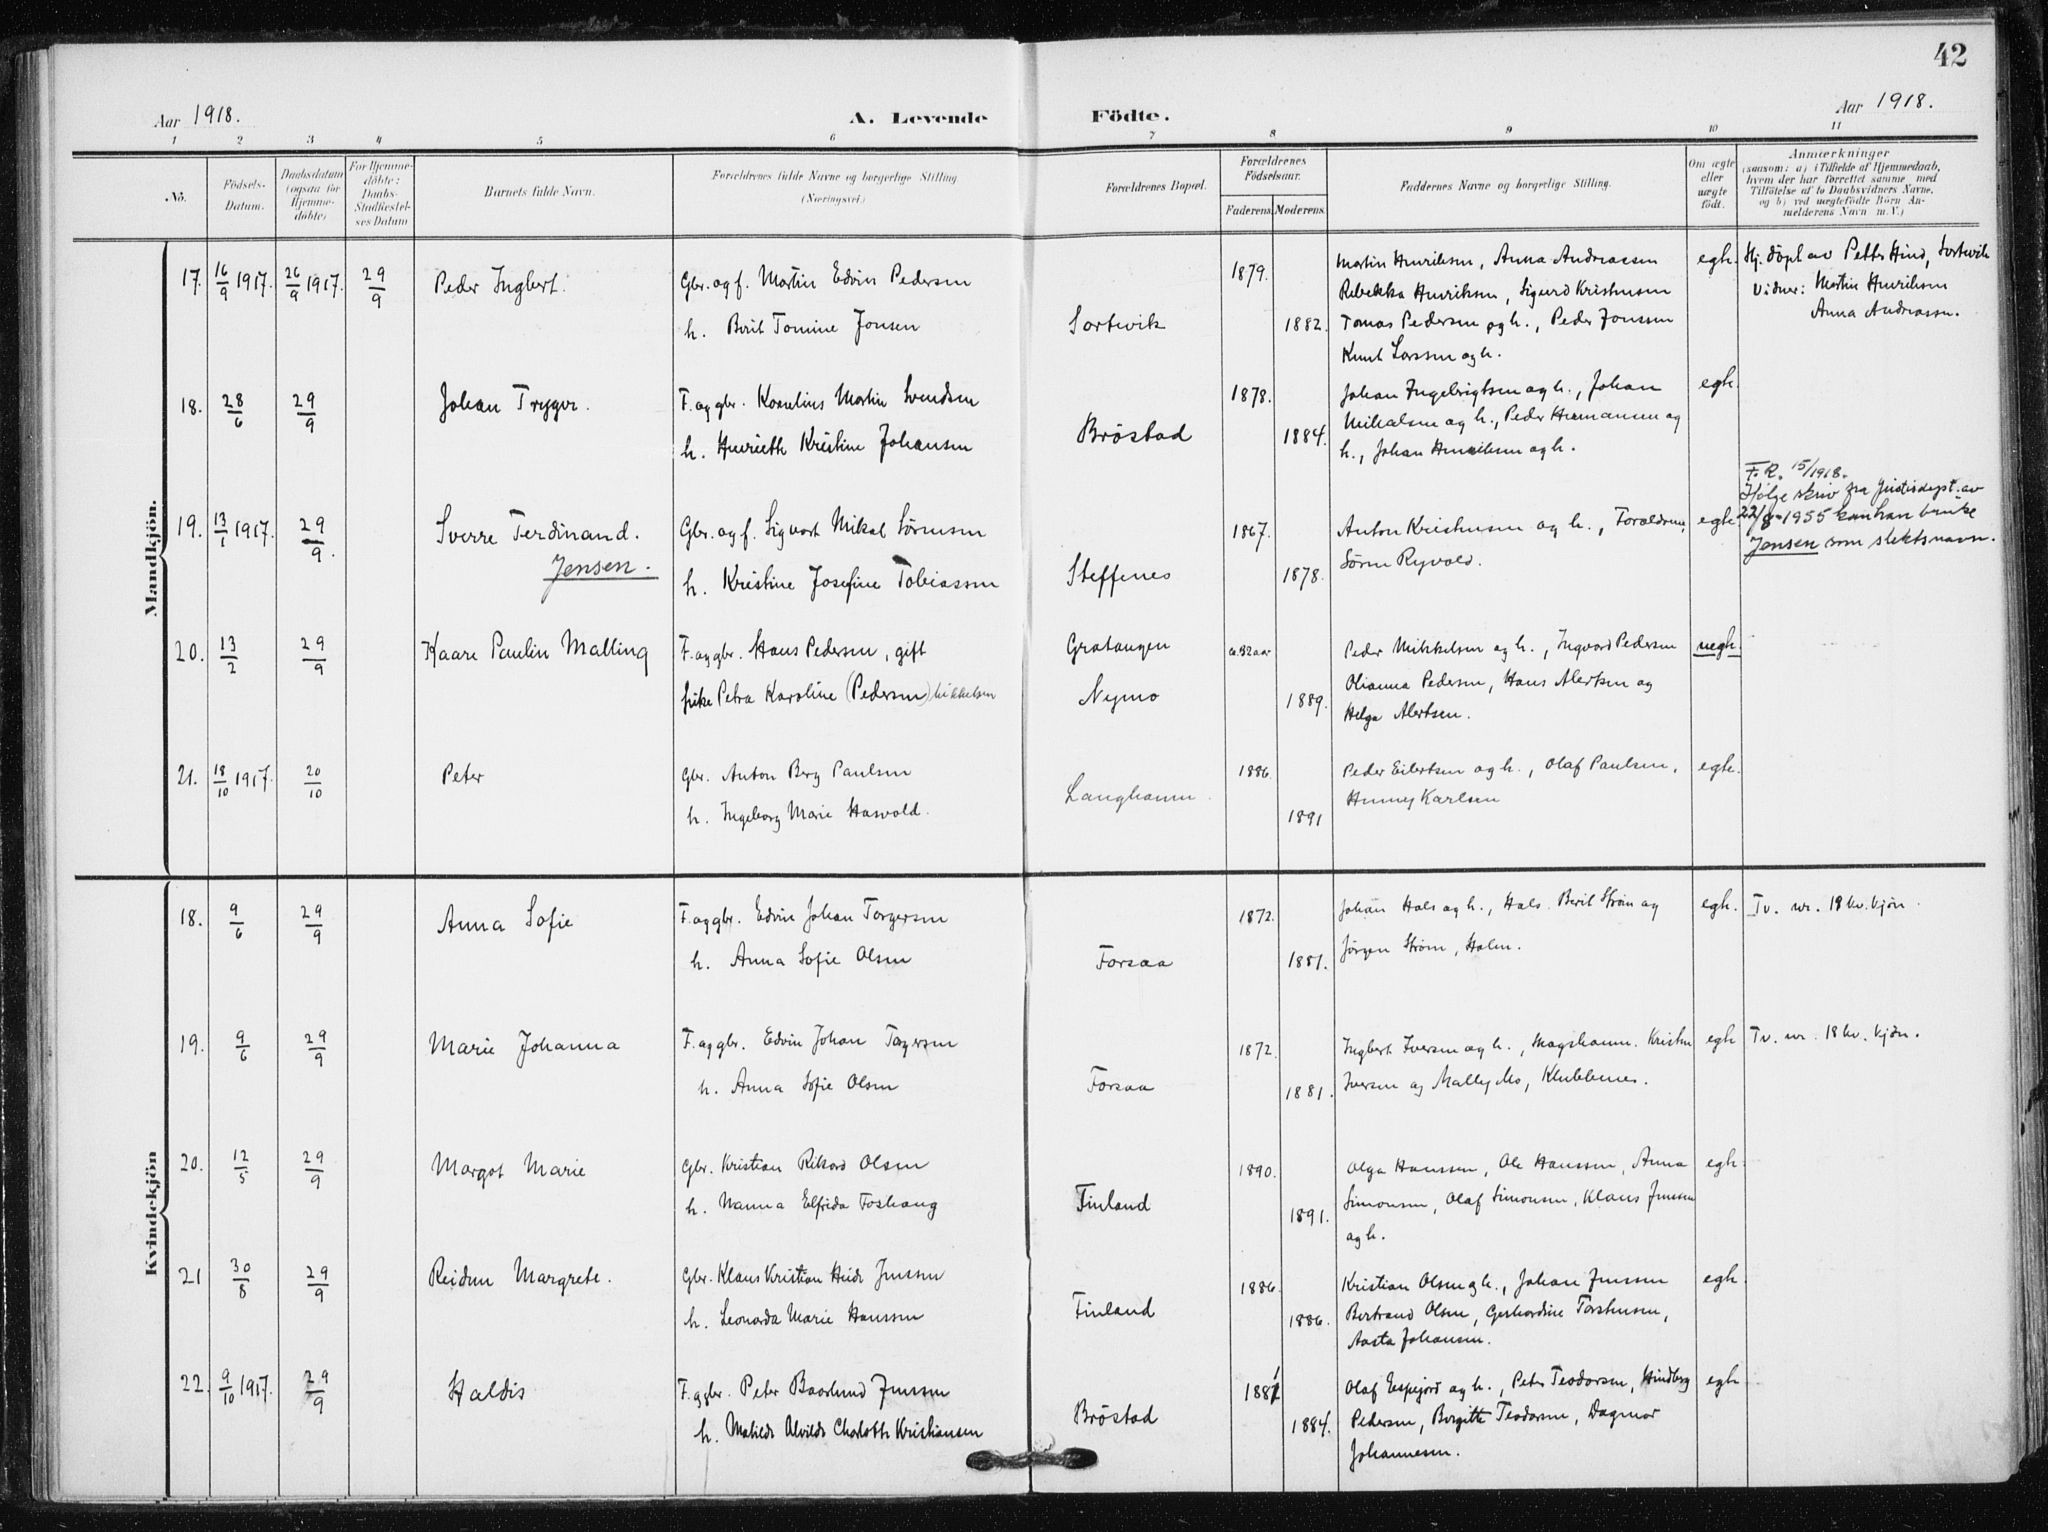 42
Aar 1918.
A. Levende
Födte.
Aar 1918.
1 2 3 4 5 6 7 8 9 10 11
No.
Födsels-Datum.
Daabsdatum (ogsaa for Hjemme-döbte)
For Hjemme-döbte: Daabs-Stadfæstel-ses Datum
Barnets fulde Navn.
Forældrenes fulde Navne og borgerlige Stilling (Næringsvei.)
Forældrenes Bopæl.
Forældrenes Födselsaar.
Faderens. Moderens.
Faddernes Navne og borgerlige Stilling.
Om ægte eller uægte födt.
Anmærkninger
(saasom: a) i Tilfælde af Hjemmedaab,
hvem der har forrettet samme med
Tilföielse af to Daabsvidners Navne,
og b) ved uægtefödte Börn An-
melderens Navn m. V.)
Mandkjön.
17. 16/9 1917. 26/9 1917. 29/9 Peder Ingbert. Gbr. og f. Martin Edvin Pedersen 1879. Martin Henriksen, Anna Andreassen egte. Hj. döpt av Petter Hind, Sortevik
Rebekka Henriksen, Sigurd Kristensen Vidner: Martin Henriksen
h. Berit Tomine Jonsen Sortevik 1882. Tomas Pedersen og h., Peder Jonssen Anna Andreassen.
Knut Larssen og h.
18. 28/6 29/9 Johan Trygve. F. og gbr. Kornelius Martin Svendsen 1878. Johan Ingebrigtsen og h., Johan egte.
h. Henriette Kristine Johansen Bröstad 1884. Mikalsen og h., Peder Hermansen og
h., Johan Henriksen og h.
19. 13/1 1917. 29/9. Sverre Ferdinand. Gbr. og f. Sigvart Mikal Sörensen 1867. Anton Kristensen og h., Forældrene, egte. F. R. 15/1918.
Ifølge skriv fra Justisdept. av
22/8-1955 kan han bruke
Jensen som slektsnavn.
Jensen. h. Kristine Josefine Tobiassen Steffenes 1878. Sören Ryvold.
20. 13/2 29/9 Kaare Paulin Malling F. og gbr. Hans Pedersen, gift Gratangen ca. 32 aar Peder Mikkelsen og h., Ingvard Pedersen uegte.
pike Petra Karoline (Pedersen) Mikkelsen Nymo 1889. Olianna Pedersen, Hans Alertsen og
Helga Alertsen.
21. 18/10 1917. 20/10 Peter Gbr. Anton Berg Paulsen 1886. Peder Eilertsen og h., Olaf Paulsen, egte.
h. Ingeborg Marie Hasvold. Langhamn. 1891 Henny Karlsen
Kvindekjön
18. 9/6 29/9 Anna Sofie F. og gbr. Edvin Johan Torgersen 1872. Johan Hals og h., Hals. Berit Ström og egte. Tv. nr. 19 kv. kjön.
h. Anna Sofie Olsen Forsaa 1881. Jörgen Ström, Halsen.
19. 9/6 29/9 Marie Johanna F. og gbr. Edvin Johan Torgersen 1872. Ingbert Iversen og h., Mogshamn. Kristen egte Tv. nr. 18 kv. kjön.
h. Anna Sofie Olsen Forsaa 1881. Iversen og Mally Mo, Klubbenes.
20. 12/5 29/9 Margot Marie Gbr. Kristian Rikard Olsen 1890. Olga Hanssen, Ole Hanssen, Anna egte.
h. Nanna Elfrida Foshaug Finland 1891. Simonsen, Olaf Simonsen, Klaus Jenssen
og h.
21 30/8 29/9 Reidun Margrete. Gbr. Klaus Kristian Heide Jenssen 1886. Kristian Olsen og h., Johan Jenssen egte.
h. Leonarda Marie Hanssen Finland 1886. Bertrand Olsen, Gerhardine Torstensen,
Aasta Johansen.
22. 9/10 1917. 29/9 Haldis F. og gbr. Peter Baarlund Jenssen 1881 Olaf Espejord og h., Peter Teodorsen, Hindberg egte
h. Matilde Alvilde Charlotte Kristiansen Bröstad 1884. Pedersen, Birgitte Teodorsen, Dagmar
Johannesen.